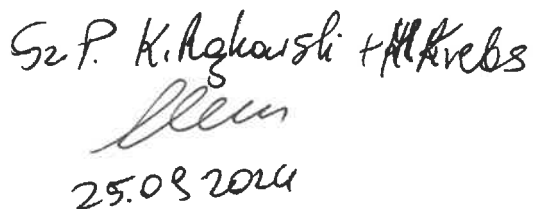 Sz.P. K. Rąkowski + M Krebs
25.09 2024